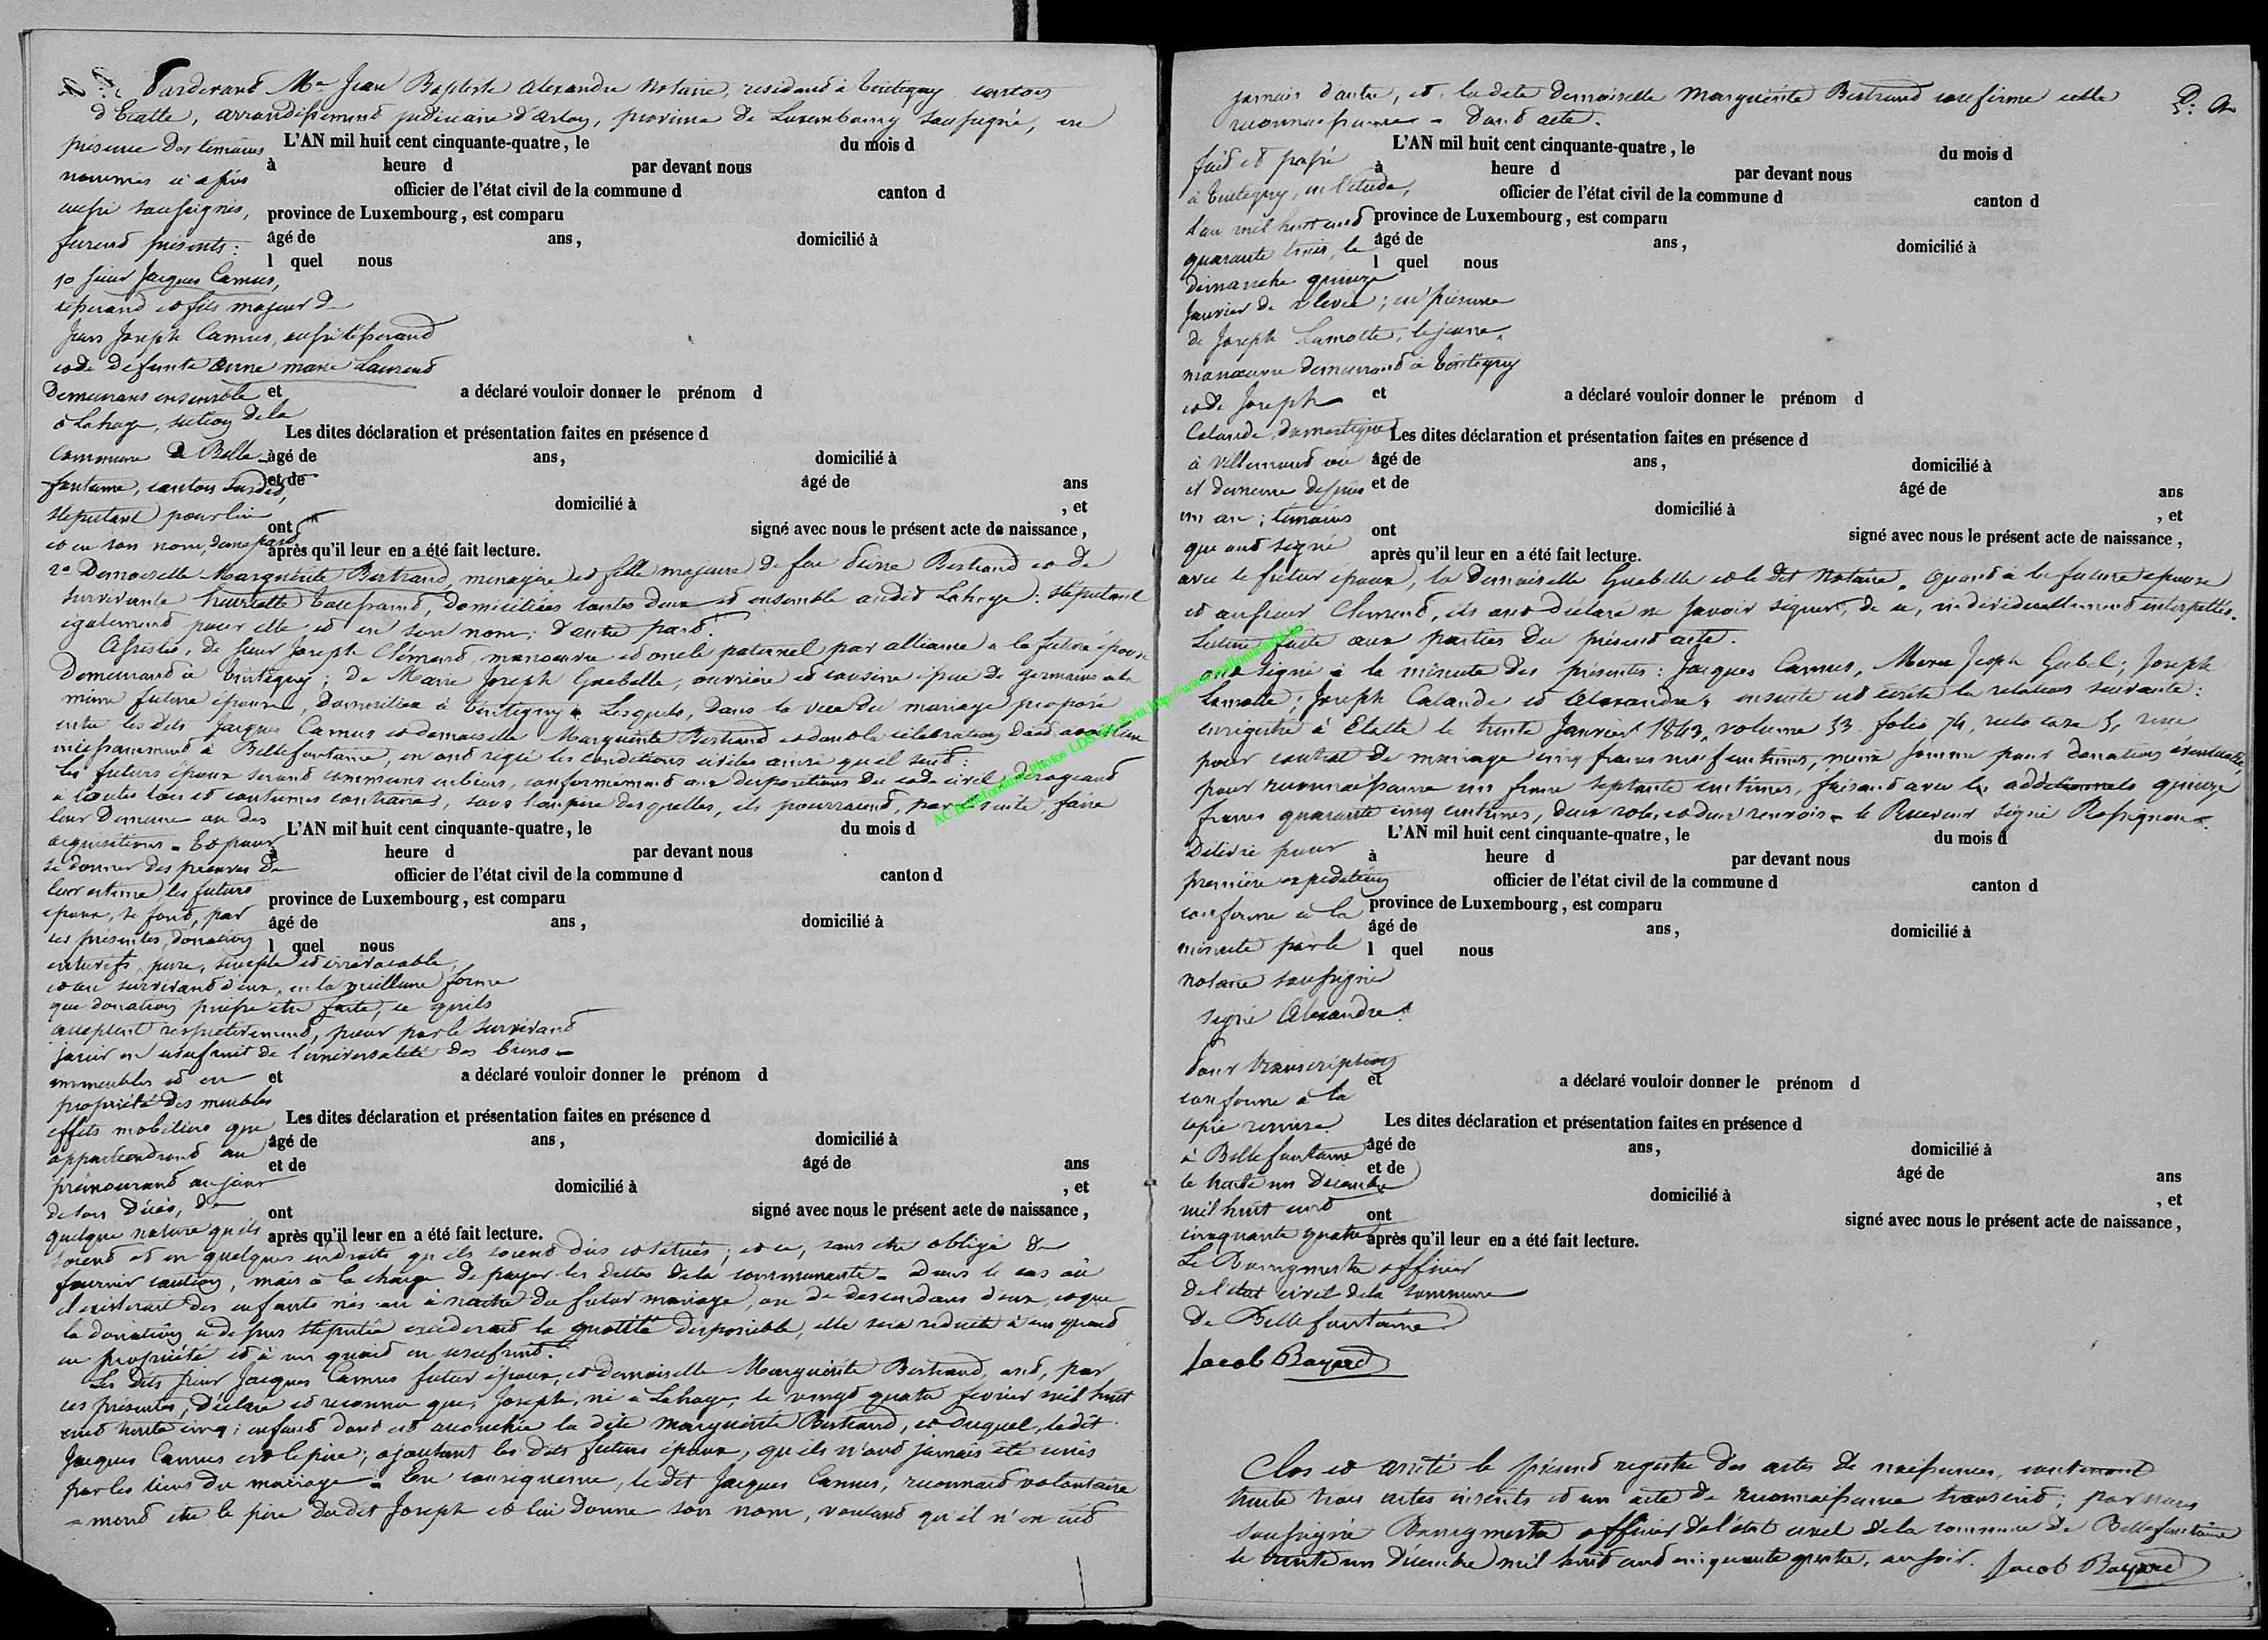 Pardevant Me Jean Baptiste Alexandre Notaire, residant à Tintigny canton
d'Etalle, arrondissement judiciaire d'Arlon, province de Luxembourg soussigné, en
présence des temoins
L'AN mil huit cent cinquante-quatre, le du mois d
nommés ci après
à heure d par devant nous
officier de l'état civil de la commune d canton d
aussi soussignés,
province de Luxembourg, est comparu
furent présents:
âgé de ans, domicilié à
l quel nous
1o Sieur Jacques Camus,
tisserand et fils majeur de
Jean Joseph Camus, aussi tisserand
et de defunte Anne Marie Laurent
Demeurans ensemble
et a déclaré vouloir donner le prénom d
à Lahage, section de la
Les dites déclaration et présentation faites en présence d
Commune de Belle-
âgé de ans, domicilié à
fontaine, canton susdit,
et de âgé de ans
stipulant pour lui
domicilié à , et
et en son nom, d'une part
ont signé avec nous le présent acte de naissance,
après qu'il leur en a été fait lecture.
2o Demoiselle Marguerite Bertrand, menagère et fille majeure de feu Bertrand et de
survivante Henriette domiciliées toutes deux et ensemble audit Lahage: stipulant
egalement pour elle et en son nom; d'autre part.
Assistés, de sieur Joseph Clément, manoeuvre et oncle paternel par alliance à la future épouse
Demeurant à Tintigny; de Marie Joseph Guebelle, ouvrière et cousine issue de germains à la
même future épouse, domiciliée à Tintigny. Lesquels, dans la vue du mariage proposé
entre les dits Jacques Camus et demoiselle Marguerite Bertrand et dont la célébration doit avoir lieu
incessamment à Bellefontaine, en ont réglé les conditions civiles ainsi qu'il suit:
les futurs époux seront communs en biens, conformément aux dispositions du code civil derogeant
à toutes lois et coutumes contraires, sous l'empire desquelles, ils pourraient, par la suite, faire
leur demeure ou des
L'AN mil huit cent cinquante-quatre, le du mois d
acquisitions. Et pour
à heure d par devant nous
se donner des preuves de
officier de l'état civil de la commune d canton d
leur estime les futurs
province de Luxembourg, est comparu
époux, se font, par
âgé de ans, domicilié à
ces présentes, donation
l quel nous
entre vifs, pure, simple et irrévocable,
et au survivant d'eux, en la meilleure forme
que donation puisse être faite, ce qu'ils
acceptent respectivement, pour par le survivant
jouir en usufruit de l'universalité des biens
immeubles et en
et a déclaré vouloir donner le prénom d
propriété des meubles
Les dites déclaration et présentation faites en présence d
effets mobiliers que
âgé de ans, domicilié à
appartiendront au
et de âgé de ans
prémourant au jour
domicilié à , et
de son décès, de
ont signé avec nous le présent acte de naissance,
quelque nature qu'ils
après qu'il leur en a été fait lecture.
soient et en quelques endroits qu'ils soient dus et situés; et ce, sans être obligé de
fournir caution, mais à la charge de payer les dettes de la communauté. Dans le cas où
il existerait des enfants nés ou à naître du futur mariage, ou de descendans d'eux, et que
la donation ci dessus stipulée excéderait la quotité disponible, elle sera réduite à un quart
en propriété et à un quart en usufruit.
Les dits sieur Jacques Camus futur époux, et demoiselle Marguerite Bertrand, ont, par
ces présentes, déclaré et reconnu que, Joseph, né à Lahage, le vingt quatre fevrier mil huit
cent trente cinq; enfant dont est accouchée la dite Marguerite Bertrand, et duquel, le dit
Jacques Camus est le père; ajoutant les dits futurs époux, qu'ils n'ont jamais été unis
par les liens du mariage. En conséquence, le dit Jacques Camus, reconnait volontaire
-ment être le père du dit Joseph et lui donne son nom, voulant qu'il n'en ait
jamais d'autre, et la dite demoiselle Marguerite Bertrand confirme cette
reconnaissance. Dont acte.
L'AN mil huit cent cinquante-quatre, le du mois d
fait et passé
à heure d par devant nous
à Tintigny, en l'étude,
officier de l'état civil de la commune d canton d
l'an mil huit cent
province de Luxembourg, est comparu
quarante trois, le
âgé de ans, domicilié à
l quel nous
dimanche quinze
Janvier de relevée; en présence
de Joseph Lamotte, le jeune,
manoeuvre demeurant à Tintigny
et de Joseph
et a déclaré vouloir donner le prénom d
Calande, domestique
Les dites déclaration et présentation faites en présence d
à Villemont où
âgé de ans, domicilié à
il demeure depuis
et de âgé de ans
un an; témoins
domicilié à , et
que ont signé
ont signé avec nous le présent acte de naissance,
après qu'il leur en a été fait lecture.
avec le futur époux, la demoiselle Guebelle et le dit Notaire. Quant à la future épouse
et au sieur Clément, ils ont déclaré ne savoir signer, de ce, individuellement interpellés.
Lecture faite aux parties du présent acte.
ont signé à la minute des présentes: Jacques Camus, Marie Joseph Gebel; Joseph
Lamotte; Joseph Calande et Alexandre, ensuite est écrite la relation suivante:
enregistré à Etalle le trente Janvier 1843, volume 33 folio 74, recto case 5, reçu
pour contrat de mariage cinq francs neuf centimes, même somme pour donation éventuelle,
pour reconnaissance un franc septante centimes, faisant avec les additionnels quinze
francs quarante cinq centimes, deux roles et deux renvois. le Receveur signé Rossignon.
L'AN mil huit cent cinquante-quatre, le du mois d
Délivré pour
à heure d par devant nous
première expédition
officier de l'état civil de la commune d canton d
conforme à la
province de Luxembourg, est comparu
âgé de ans, domicilié à
minute par le
l quel nous
notaire soussigné
signé Alexandre.
Pour transcription
et a déclaré vouloir donner le prénom d
conforme à la
Les dites déclaration et présentation faites en présence d
copie remise
âgé de ans, domicilié à
à Bellefontaine
et de âgé de ans
le trente un Décembre
domicilié à , et
mil huit cent
ont signé avec nous le présent acte de naissance,
cinquante quatre
après qu'il leur en a été fait lecture.
Le Bourgmestre officier
de l'état civil de la commune
de Bellefontaine
Jacob Bayard
Clos et arrêté le présent registre des actes de naissances, contenant
trente trois actes inscrits et un acte de reconnaissance transcrit; par nous
soussigné Bourgmestre officier de l'état civil de la commune de Bellefontaine
le trente un Décembre mil huit cent cinquante quatre, au soir. Jacob Bayard